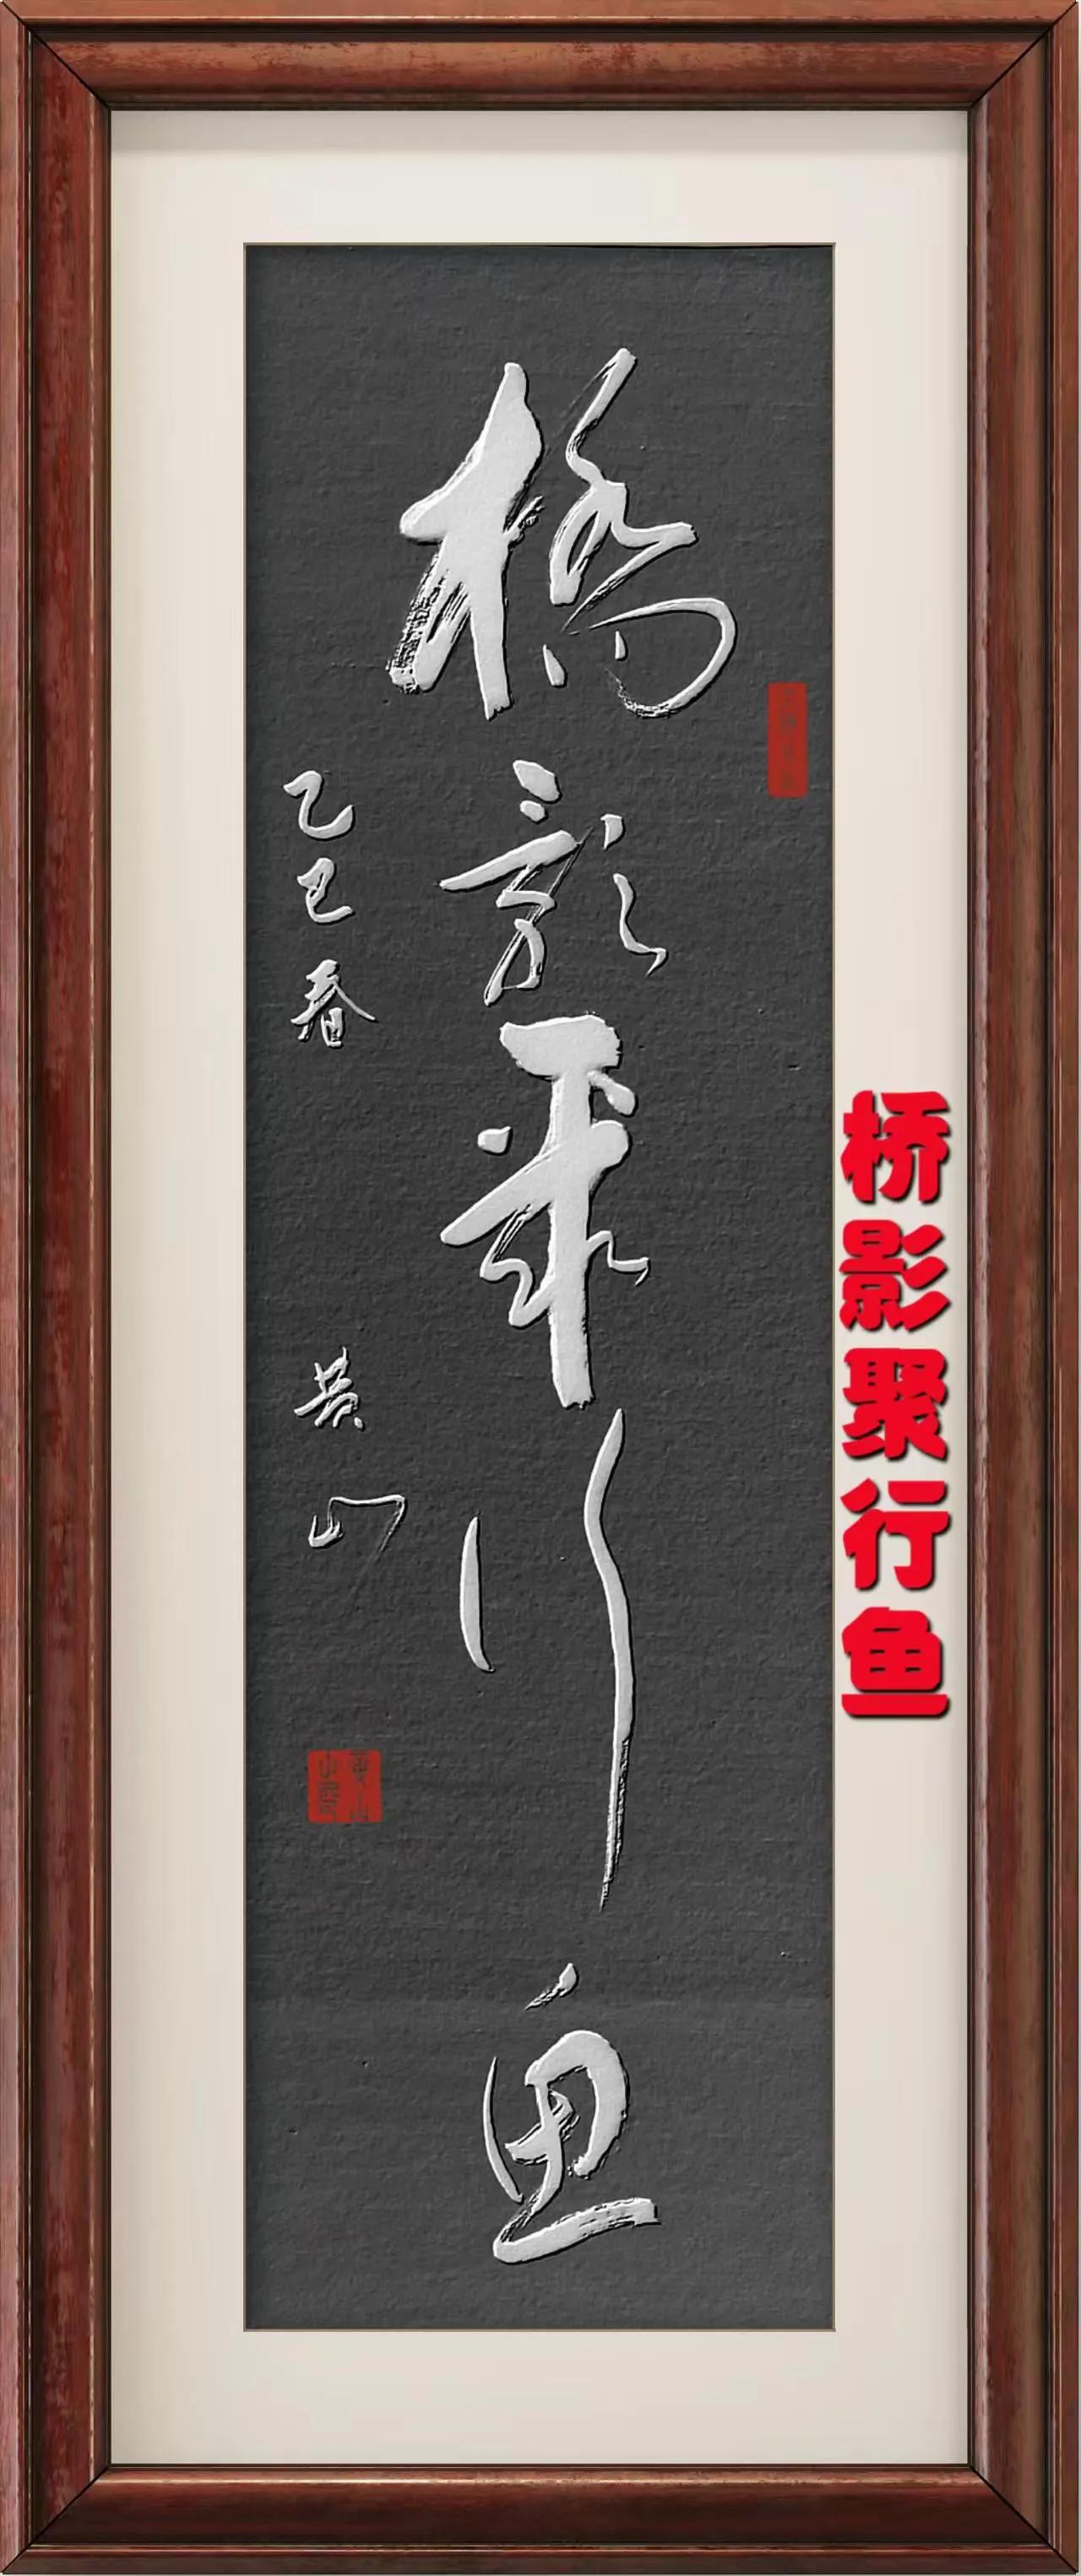 橋影聚行魚
乙巳春
黄山
桥影聚行鱼